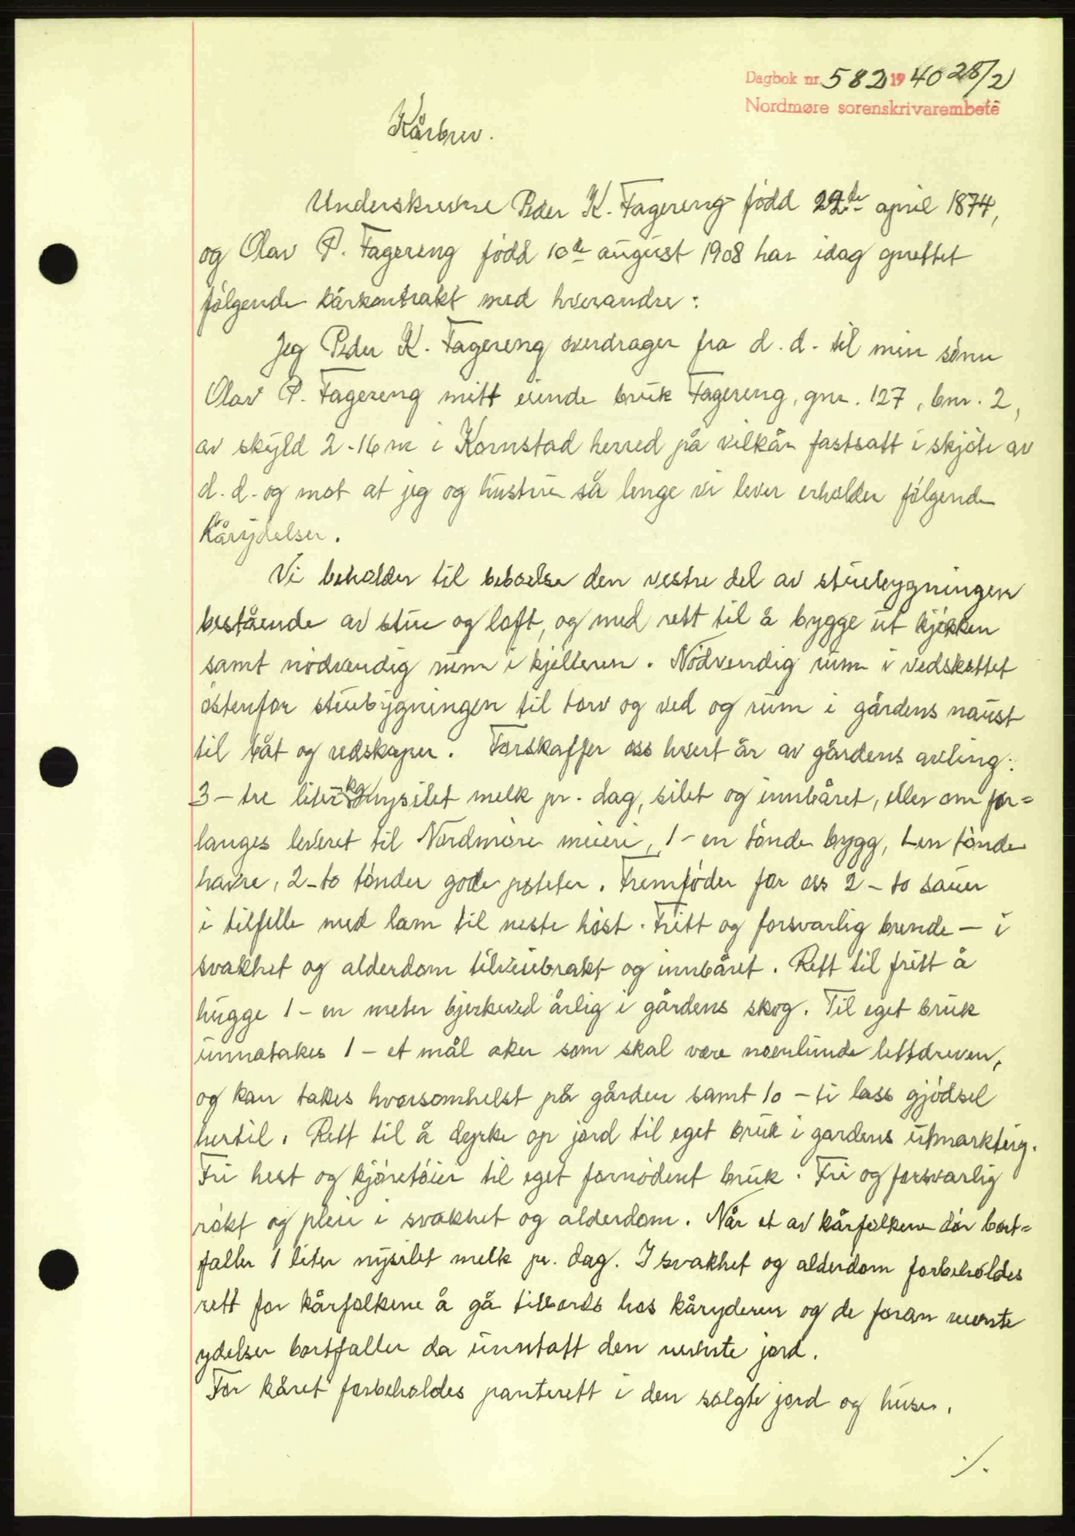 Dagbok nr. 582 1940 28/2
Nordmøre sorenskrivarembete
Kårbrev.
Underskrevne Peder K. Fagereng født 22de april 1874,
og Olav P. Fagereng født 10de august 1908 har idag oprettet
følgende kårkontrakt med hverandre:
Jeg Peder K. Fagereng overdrager fra d.d. til min sønn
Olav P. Fagereng mitt eiende bruk Fagereng, gnr. 127, bnr. 2,
av skyld 2-16 m i Kornstad herred på vilkår fastsatt i skjøte av
d.d. og mot at jeg og hustru så lenge vi lever erholder følgende
kårydelser.
Vi beholder til beboelse den vestre del av stuebygningen
bestående av stue og loft, og med rett til å bygge ut kjøkken
samt nødvendig rum i kjelleren. Nødvendig rum i vedskottet
østenfor stuebygningen til torv og ved og rum i gårdens naust
til båt og redskaper. Forskaffer oss hvert år av gårdens avling:
3 - tre liter kg nysilet melk pr. dag, silet og innbåret, eller om for=
langes leveret til Nordmøre meieri, 1 - en tønde bygg, 1 en tønde
havre, 2 - to tønder gode poteter. Fremføder for oss 2 - to sauer
i tilfelle med lam til neste høst. Fritt og forsvarlig brende - i
svakhet og alderdom tilveiebrakt og innbåret. Rett til fritt å
hugge 1 - en meter bjerkeved årlig i gårdens skog. Til eget bruk
unnatakes 1 - et mål aker som skal være noenlunde lettdreven,
og kan takes hvorsomhelst på gården samt 10 - ti lass gjødsel
hertil. Rett til å dyrke op jord til eget bruk i gardens utmarkteig.
Fri hest og kjøretøier til eget fornødent bruk. Fri og forsvarlig
røkt og pleie i svakhet og alderdom. Når et av kårfolkene dør bort=
faller 1 liter nysilet melk pr. dag. I svakhet og alderdom forbeholdes
rett for kårfolkene å gå tilbords hos kåryderen og de foran nevnte
ydelser bortfaller da unntatt den nevnte jord.
For kåret forbeholdes panterett i den solgte jord og huser.
./.